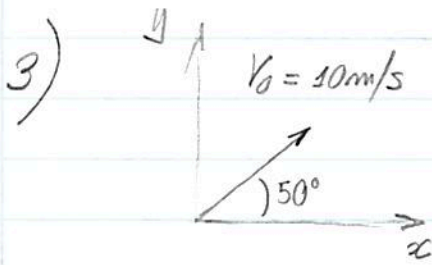 3)
y
V₀ = 10m/s
50°
x